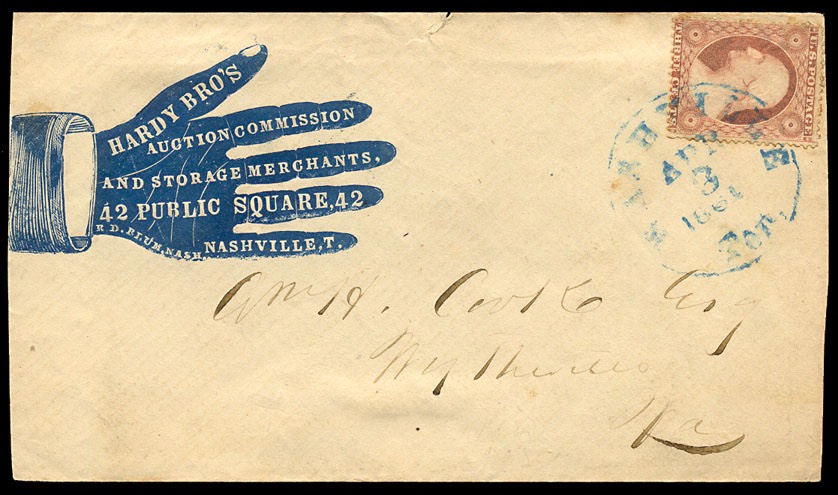 HARDY BRO'S
AUCTION COMMISSION
AND STORAGE MERCHANTS,
42 PUBLIC SQUARE, 42
NASHVILLE, T.
R. D. BLUM, NASH.
THREE CENTS
U.S. POSTAGE
NASHVILLE
APR
3
1861
Ten.
Wm H. Cook Esq
Wytheville
Va